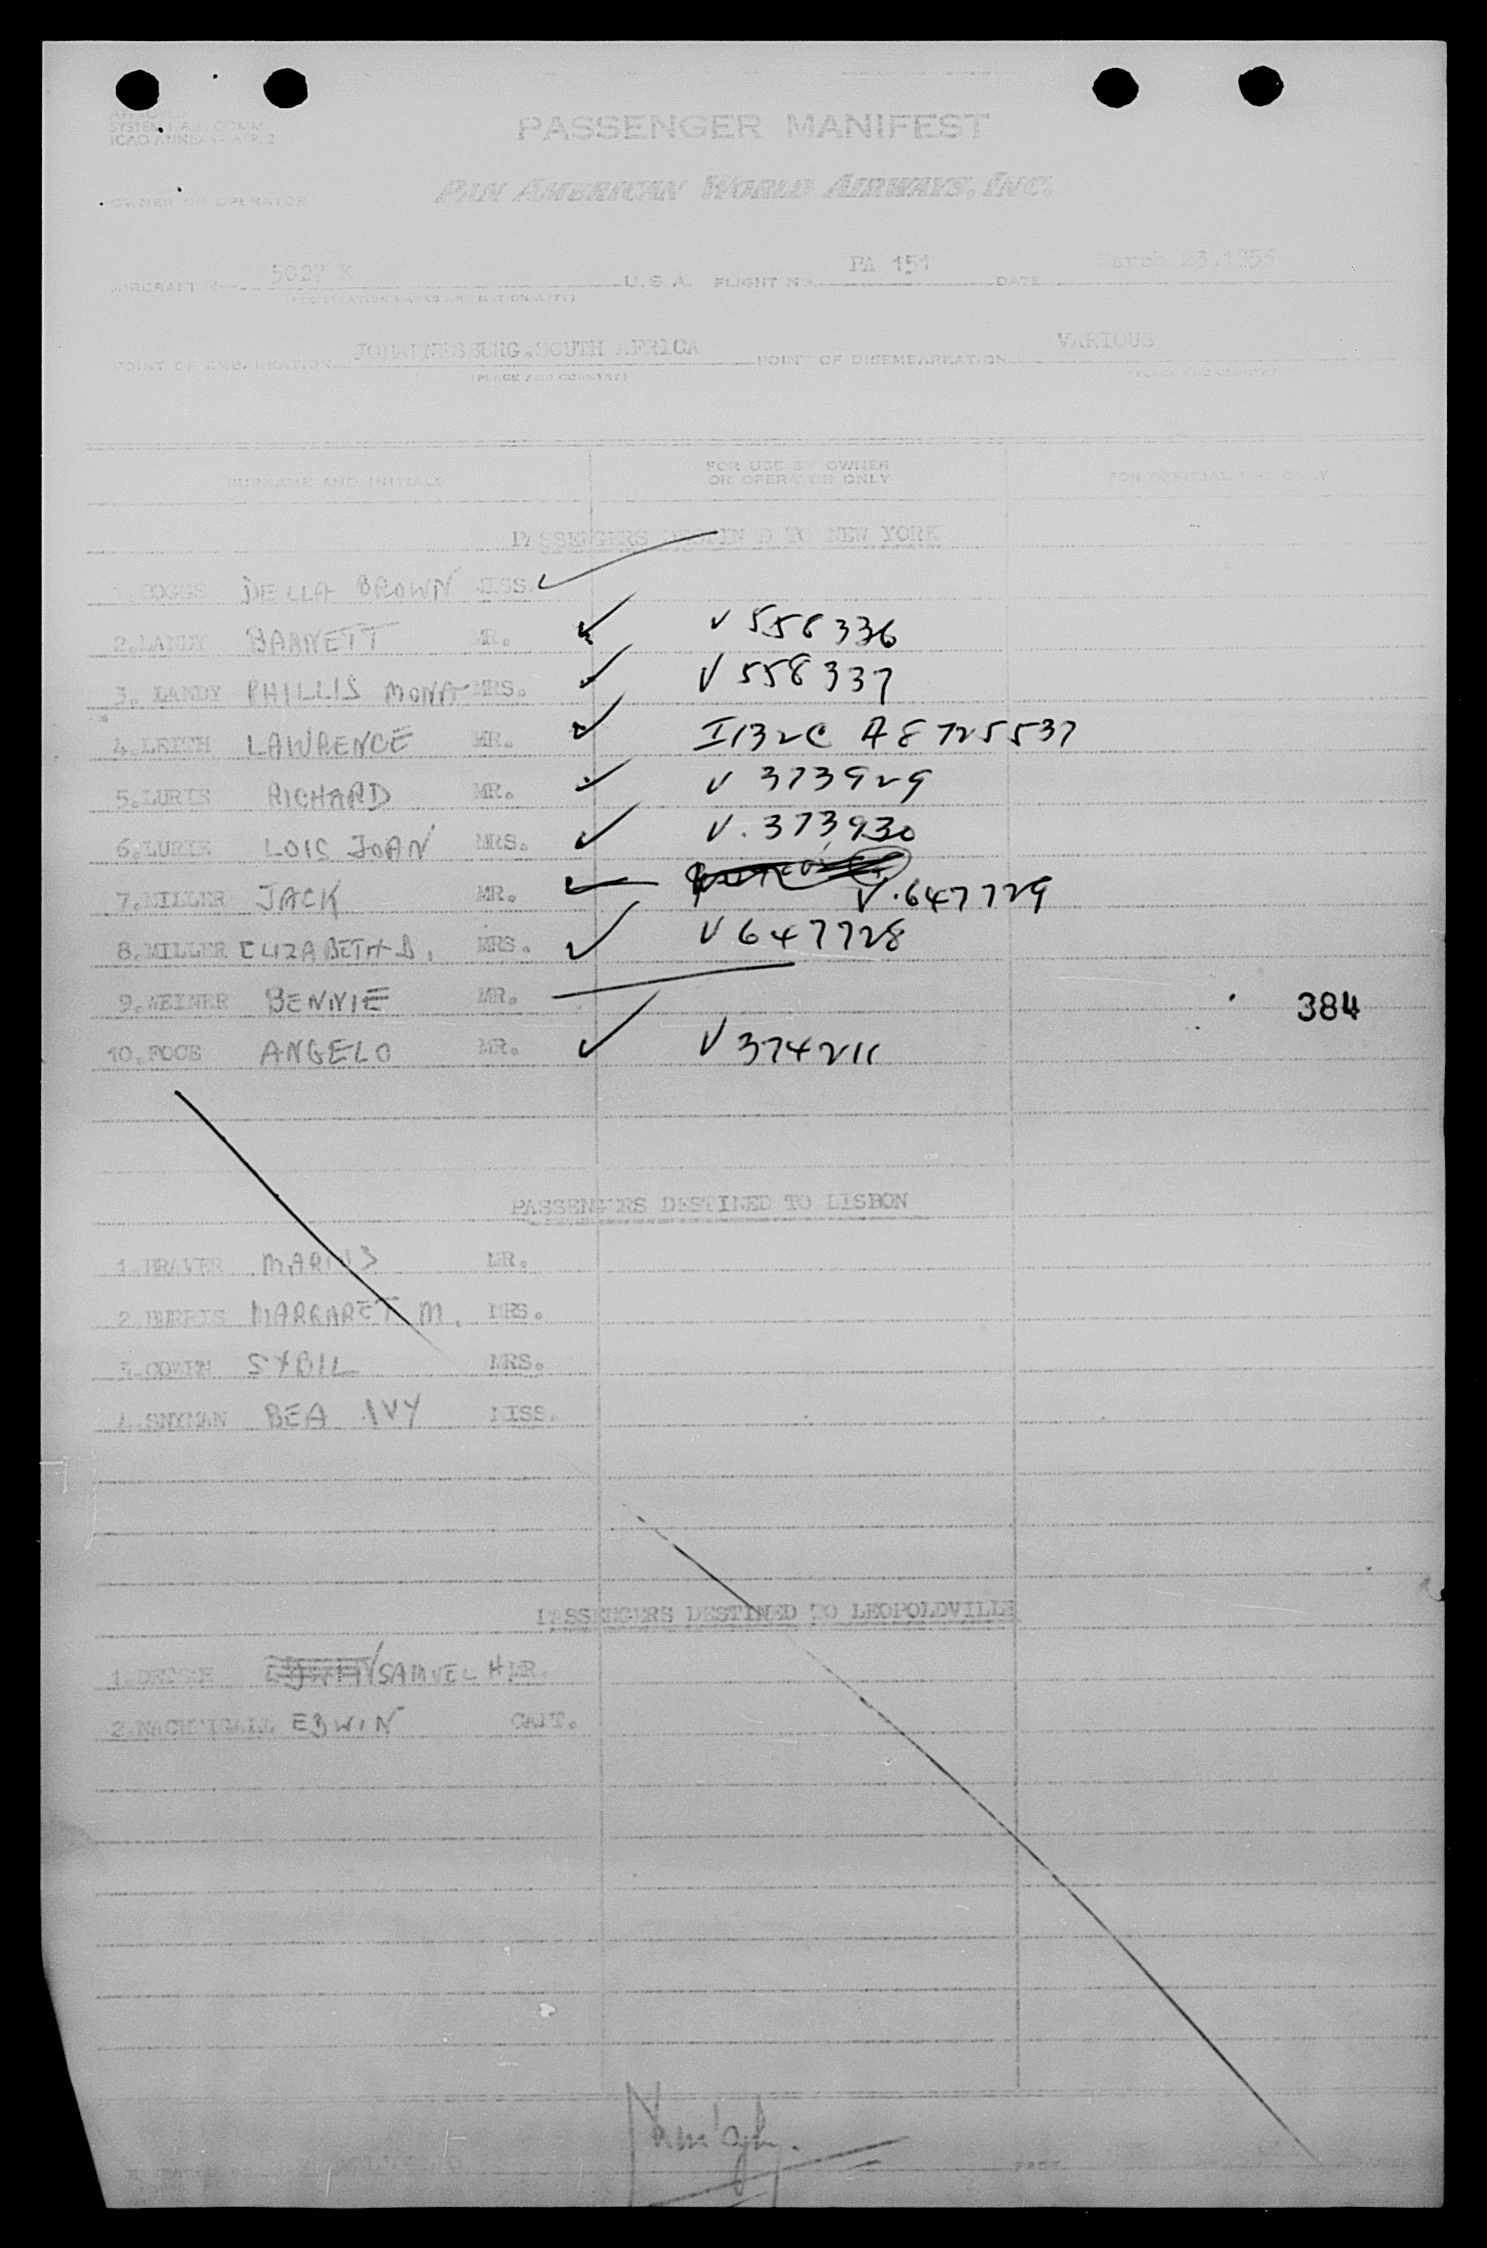 ICAO ANNEX 9 APP. 2
PASSENGER MANIFEST
PAN AMERICAN WORLD AIRWAYS, INC.
OWNER OR OPERATOR
AIRCRAFT 5027 K U.S.A. FLIGHT NO. PA 151 DATE March 23.1955
(REGISTRATION MARKS AND NATIONALITY)
POINT OF EMBARKATION JOHANNESBURG.SOUTH AFRICA POINT OF DISEMBARKATION VARIOUS
(PLACE AND COUNTRY) (PLACE AND COUNTRY)
SURNAME AND INITIALS FOR USE BY OWNER OR OPERATOR ONLY FOR OFFICIAL USE ONLY
PASSENGERS DESTINED TO NEW YORK
1.BOGGS DELLA BROWN MISS. ✓
2.LANDY BARNETT MR. ✓ V 558336
3. LANDY PHILLIS MONA MRS. ✓ V 558337
4.LEITH LAWRENCE MR. ✓ I132C A8725537
5.LURIE RICHARD MR. ✓ V 373929
6.LURIE LOIS JOAN MRS. ✓ V. 373930
7.MILLER JACK MR. ✓ V.647729
8.MILLER ELIZABETH B. MRS. ✓ V 647728
9.WEINER BENNIE MR.
384
10.FOCE ANGELO MR. ✓ V 374211
PASSENGERS DESTINED TO LISBON
1.BRAVER MARIUS MR.
2. MARGARET M. MRS.
3.COWEN SYBIL MRS.
4.SNYMAN BEA IVY MISS.
PASSENGERS DESTINED TO LEOPOLDVILLE
1. EDWIN SAMUEL H MR.
2.NACHTIGALL EDWIN CAPT.
PAGE